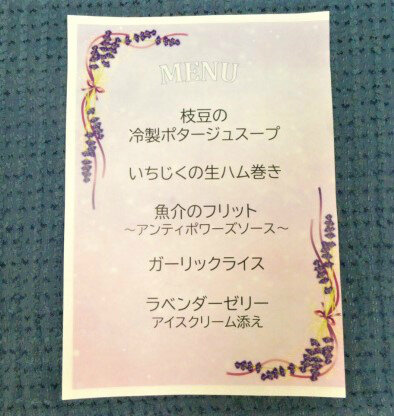 MENU
枝豆の
冷製ポタージュスープ
いちじくの生ハム巻き
魚介のフリット
～アンティポワーズソース～
ガーリックライス
ラベンダーゼリー
アイスクリーム添え